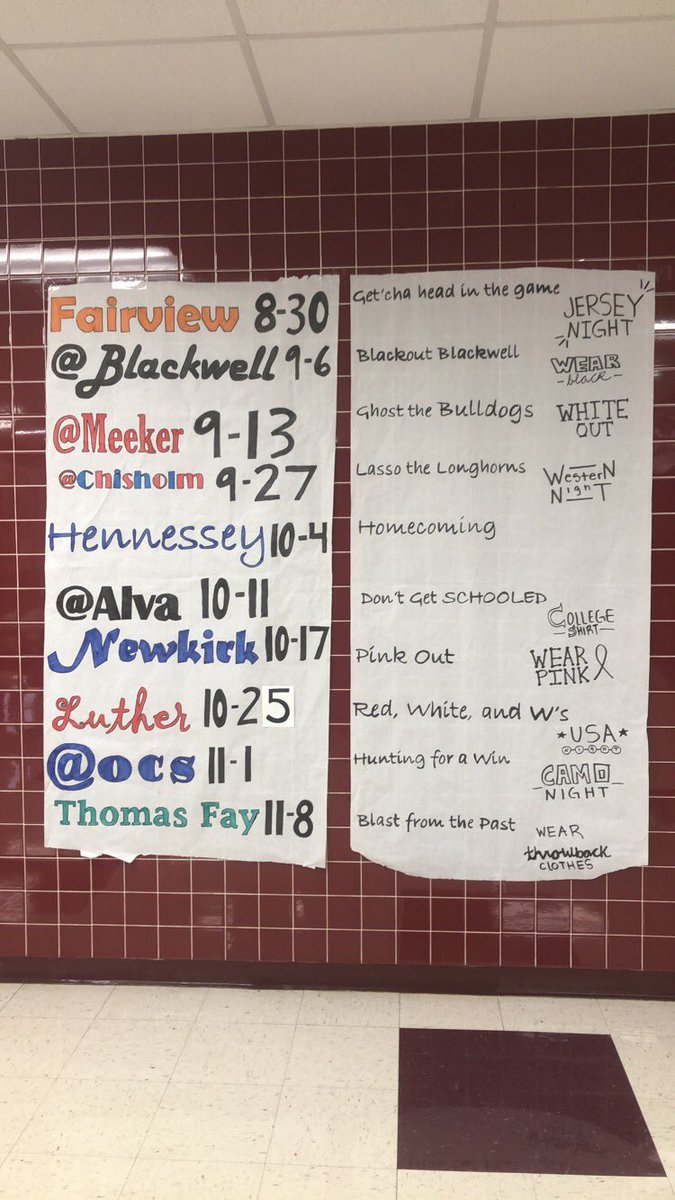 Fairview 8-30
@Blackwell 9-6
@Meeker 9-13
@Chisholm 9-27
Hennessey 10-4
@Alva 10-11
Newkirk 10-17
Luther 10-25
@ocs 11-1
Thomas Fay 11-8
Get'cha head in the game
JERSEY
NIGHT
Blackout Blackwell
WEAR
-black-
Ghost the Bulldogs
WHITE
OUT
Lasso the Longhorns
WesterN
NighT
Homecoming
Don't Get SCHOOLED
COLLEGE
-SHIRT-
Pink Out
WEAR
PINK
Red, White, and W's
★USA★
NIGHT
Hunting for a Win
CAMO
-NIGHT-
Blast from the Past
WEAR
throwback
CLOTHES